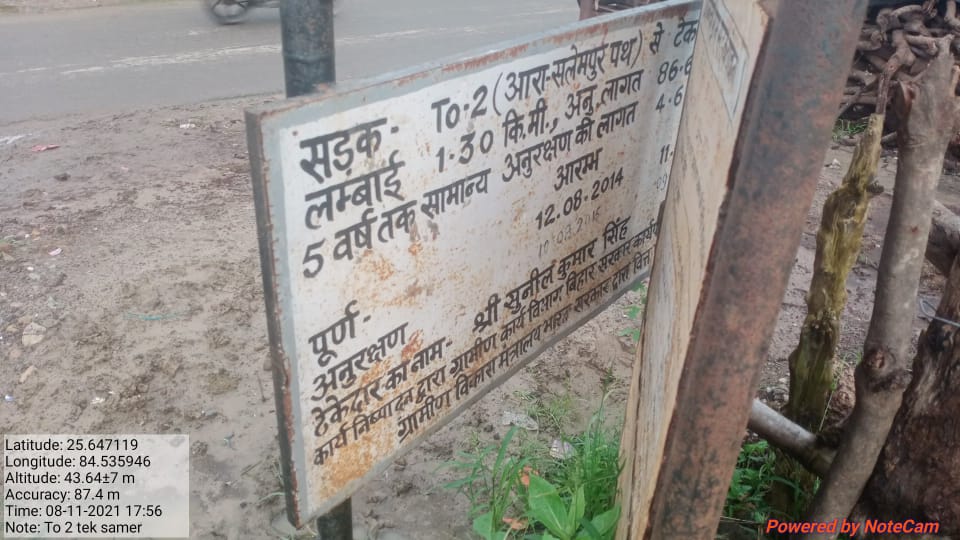 सड़क- TO-2 (आरा-सलेमपुर पथ) से टेक
लम्बाई 1.30 कि.मी., अनु.लागत 86.6
5 वर्ष तक सामान्य अनुरक्षण की लागत 4.6
आरम्भ 11.
12.08.2014
पूर्ण-
अनुरक्षण
ठेकेदार का नाम- श्री सुनील कुमार सिंह
कार्य निष्पादन द्वारा ग्रामीण कार्य विभाग, बिहार सरकार
ग्रामीण विकास मंत्रालय भारत सरकार द्वारा वित्त
Latitude: 25.647119
Longitude: 84.535946
Altitude: 43.64±7 m
Accuracy: 87.4 m
Time: 08-11-2021 17:56
Note: To 2 tek samer
Powered by NoteCam